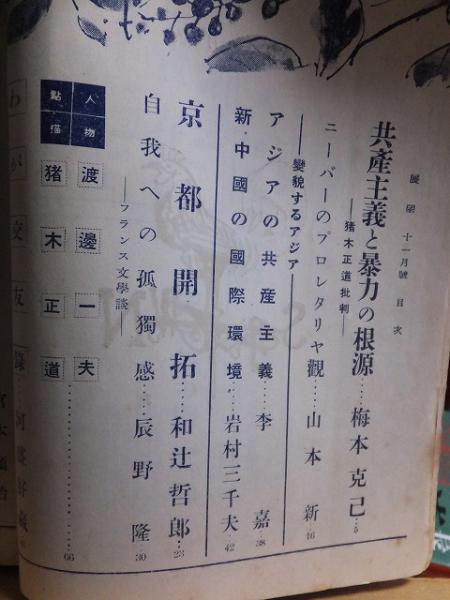 展望 十一月號 目次
共產主義と暴力の根源……梅本克己…5
——猪木正道批判——
ニーバーのプロレタリヤ觀……山本 新…16
——變貌するアジア——
アジアの共産主義……李 嘉…38
新・中國の國際環境……岩村三千夫…42
京都開拓……和辻哲郎…23
自我への孤獨感……辰野 隆…30
——フランス文學談——
人物點描
渡邊一夫
猪木正道……66
わが交友錄……河盛好藏